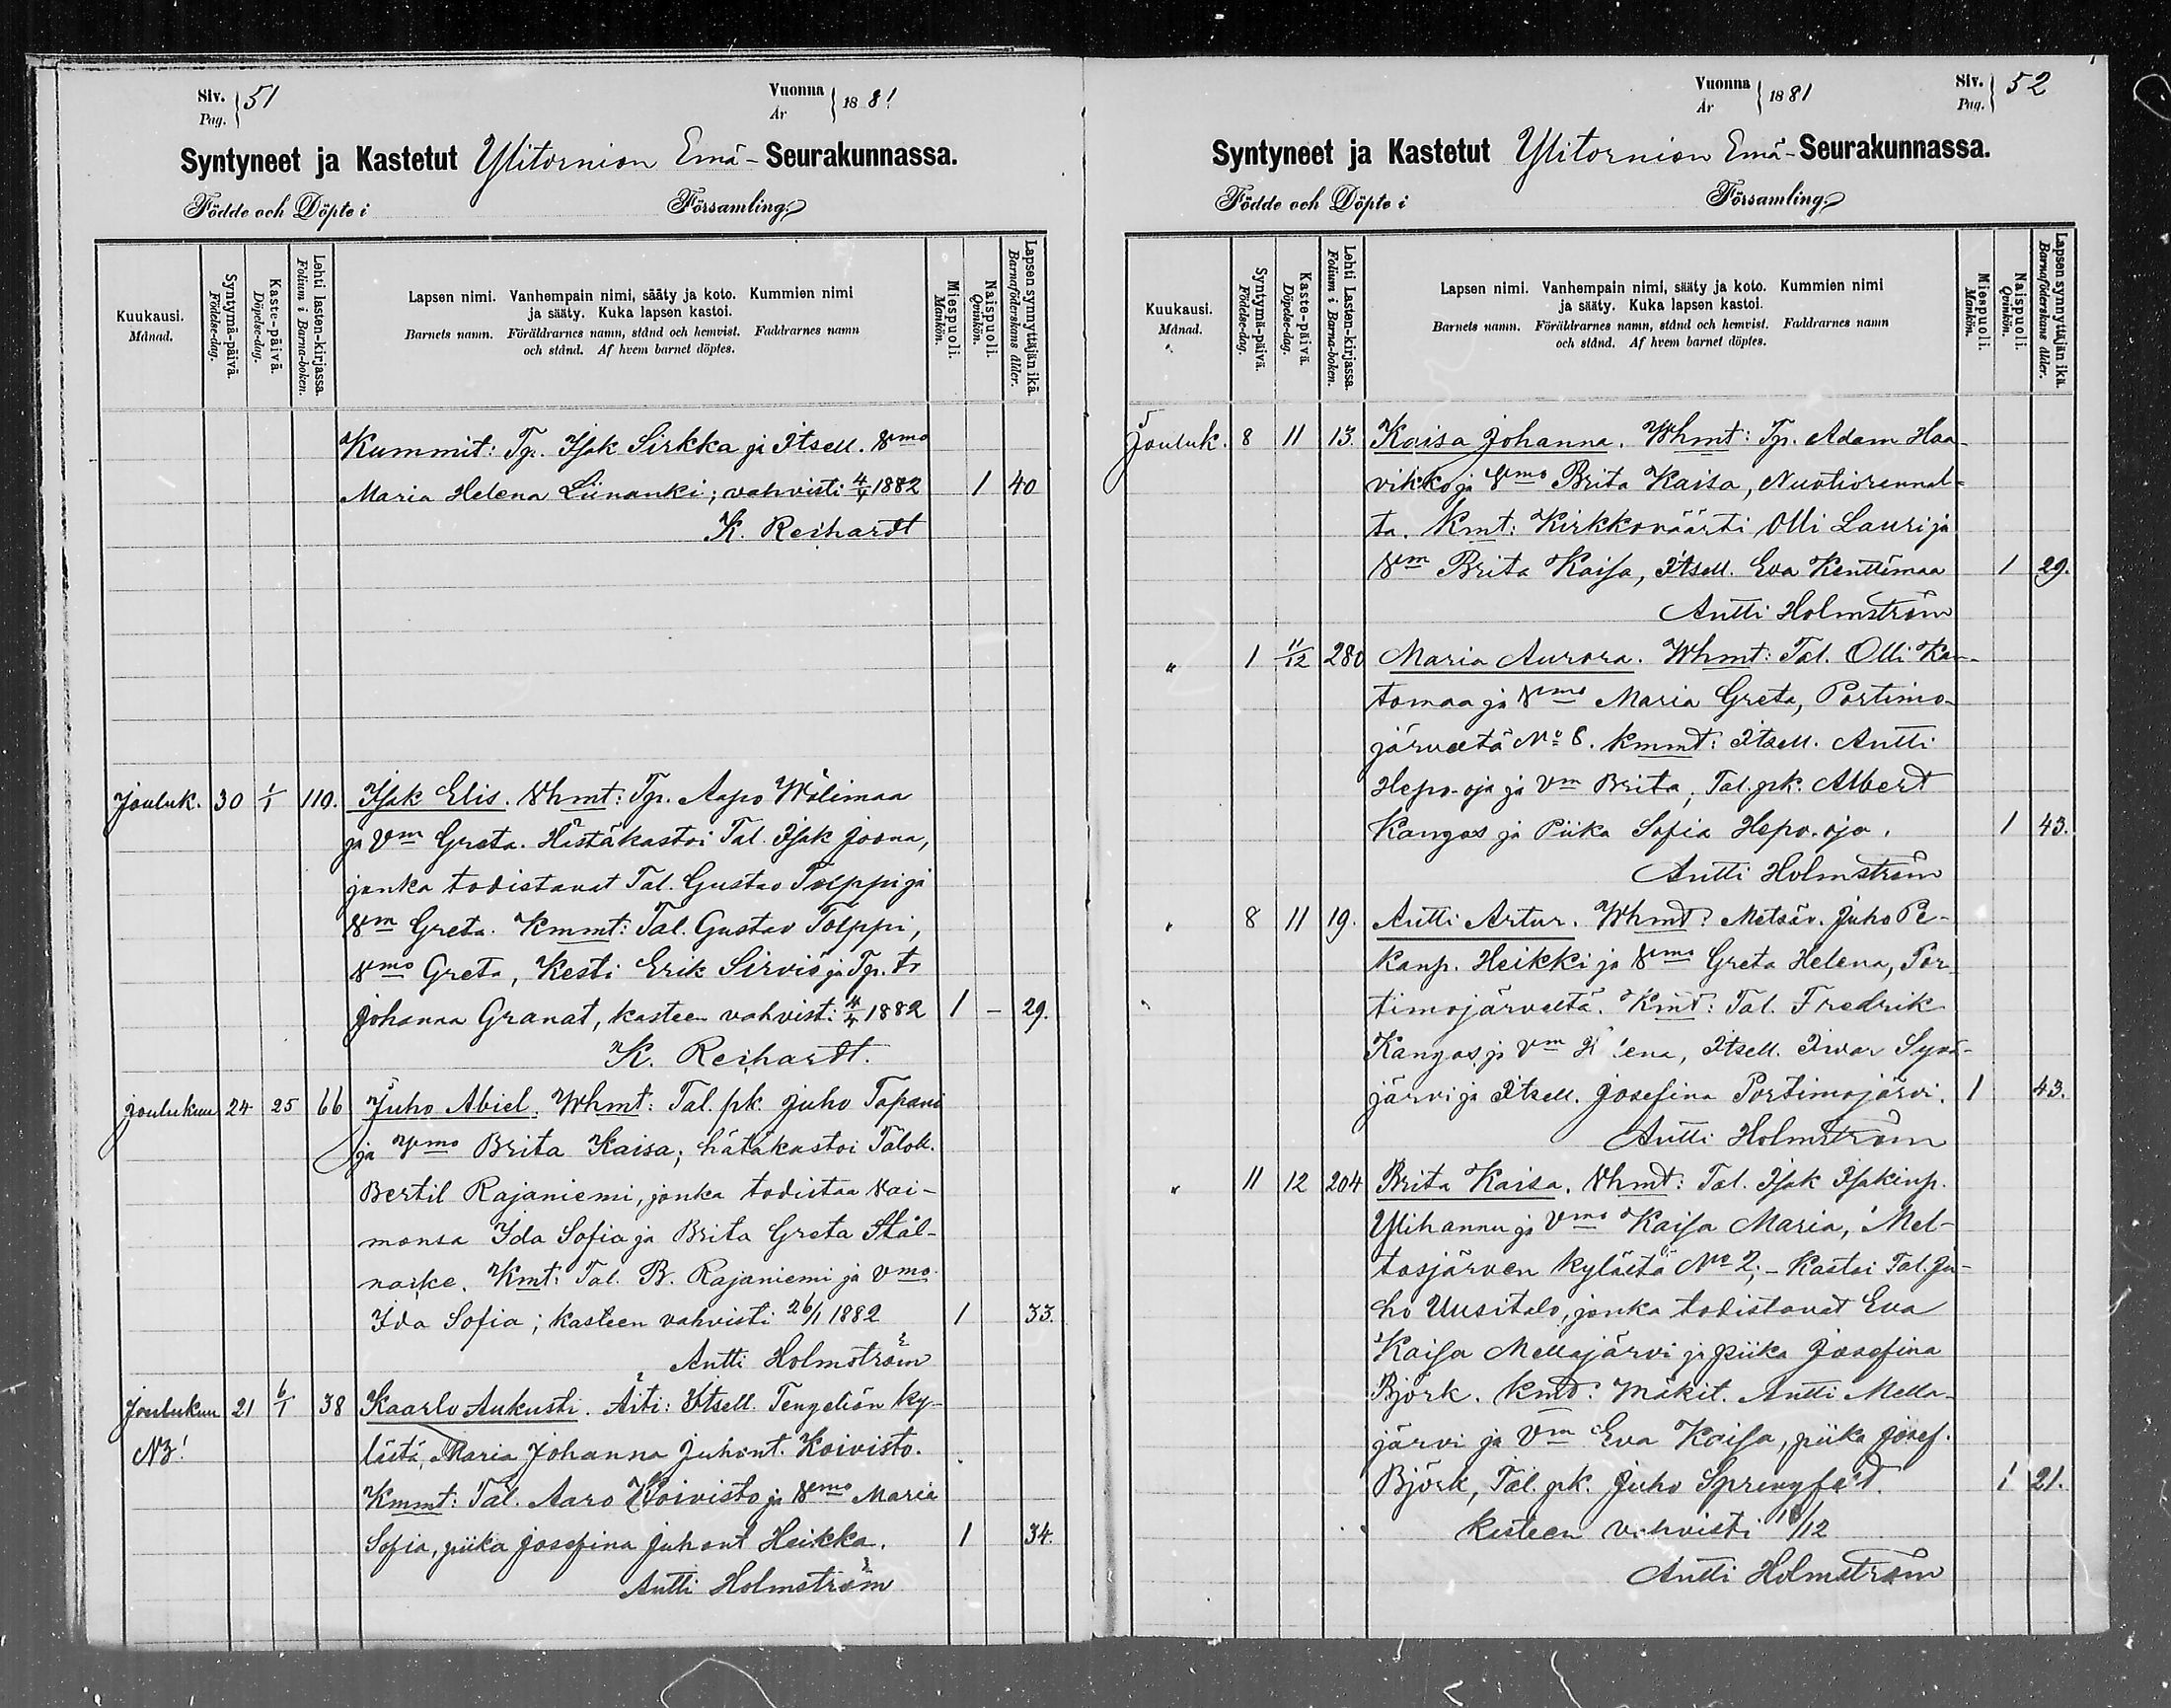 Siv. Pag. 51
Vuonna År 1881
Syntyneet ja Kastetut Ylitornion Emä-Seurakunnassa.
Födde och Döpte i Församling.
Kuukausi. Månad.
Syntymä-päivä. Födelse-dag.
Kaste-päivä. Döpelse-dag.
Lehti lasten-kirjassa. Folium i Barna-boken.
Lapsen nimi. Vanhempain nimi, sääty ja koto. Kummien nimi
ja sääty. Kuka lapsen kastoi.
Barnets namn. Föräldrarnes namn, stånd och hemvist. Faddrarnes namn
och stånd. Af hvem barnet döptes.
Miespuoli. Mankön.
Naispuoli. Qvinkön.
Lapsen synnyttäjän ikä. Barnaföderskans ålder.
Kummit: Tp. Isak Sirkka ja Itsell. Vmo
Maria Helena Liinanki; vahvisti 4/4 1882 1 40
K. Reihardt
Jouluk. 30 1/1 119. Isak Elis. Vhmt: Tp. Aapo Wälimaa
ja Vm Greta. Hätäkastoi Tal. Isak Joona,
jonka todistavat Tal. Gustav Tolppi ja
Vm Greta. Kmmt: Tal. Gustav Tolppi,
Vmo Greta, Kesti Erik Sirviö ja Tp. tr
Johanna Granat, kasteen vahvisti 4/4 1882 1 – 29.
K. Reihardt.
Joulukuu 24 25 66 Juho Abiel. Whmt: Tal. pk. Juho Tapani
ja Vmo Brita Kaisa; hätäkastoi Talok.
Bertil Rajaniemi, jonka todistaa Vai-
monsa Ida Sofia ja Brita Greta Stål-
nacke. Kmt: Tal. B. Rajaniemi ja Vmo
Ida Sofia; kasteen vahvisti 26/1 1882 1 33.
Antti Holmström
Joulukuu 21 6/1 38 Kaarlo Aukusti. Äiti: Itsell. Tengeliön ky-
NB! lästä, Maria Johanna Juhont. Koivisto.
Kmmt: Tal. Aaro Koivisto ja Vmo Maria
Sofia, piika Josefina Juhont Heikka. 1 34.
Antti Holmström
Vuonna År 1881
Siv. Pag. 52
Syntyneet ja Kastetut Ylitornion Emä-Seurakunnassa.
Födde och Döpte i Församling.
Kuukausi. Månad.
Syntymä-päivä. Födelse-dag.
Kaste-päivä. Döpelse-dag.
Lehti Lasten-kirjassa. Folium i Barna-boken.
Lapsen nimi. Vanhempain nimi, sääty ja koto. Kummien nimi
ja sääty. Kuka lapsen kastoi.
Barnets namn. Föräldrarnes namn, stånd och hemvist. Faddrarnes namn
och stånd. Af hvem barnet döptes.
Miespuoli. Mankön.
Naispuoli. Qvinkön.
Lapsen synnyttäjän ikä. Barnaföderskans ålder.
Jouluk. 8 11 13. Kaisa Johanna. Whmt: Tp. Adam Haa-
vikko ja Vmo Brita Kaisa, Nuotiorannal-
ta. Kmt: Kirkkoväärti Olli Lauri ja
Vm Brita Kaisa, Itsell. Eva Kenttämaa 1 29.
Antti Holmström
" 1 11/12 280 Maria Aurora. Whmt: Tal. Olli Kan-
tomaa ja Vmo Maria Greta, Portimo-
järveltä No 8. Kmmt: Itsell. Antti
Hepo-oja ja Vm Brita, Tal. pk. Albert
Kangas ja Piika Sofia Hepo-oja. 1 43.
Antti Holmström
" 8 11 19. Antti Artur. Whmt: Metsäv. Juho Pe-
kanp. Heikki ja Vmo Greta Helena, Por-
timojärveltä. Kmt: Tal. Fredrik
Kangas ja Vm Iivar Syvä-
järvi ja Itsell. Josefina Portimojärvi. 1 43.
Antti Holmström
" 11 12 204 Brita Kaisa. Vhmt: Tal. Isak Isakinp.
Ylihannu ja Vmo Kaisa Maria, Mel-
tosjärven kylästä No 2; – Kastoi Tal. Ju-
ho Uusitalo, jonka todistavat Eva
Kaisa Mellajärvi ja piika Josefina
Björk. Kmt: Mäkit. Antti Mella-
järvi ja Vm Eva Kaisa, piika Josef.
Björk, Tal. pk. Juho Sprengfelt. 1 21.
Kasteen vahvisti 18/12
Antti Holmström